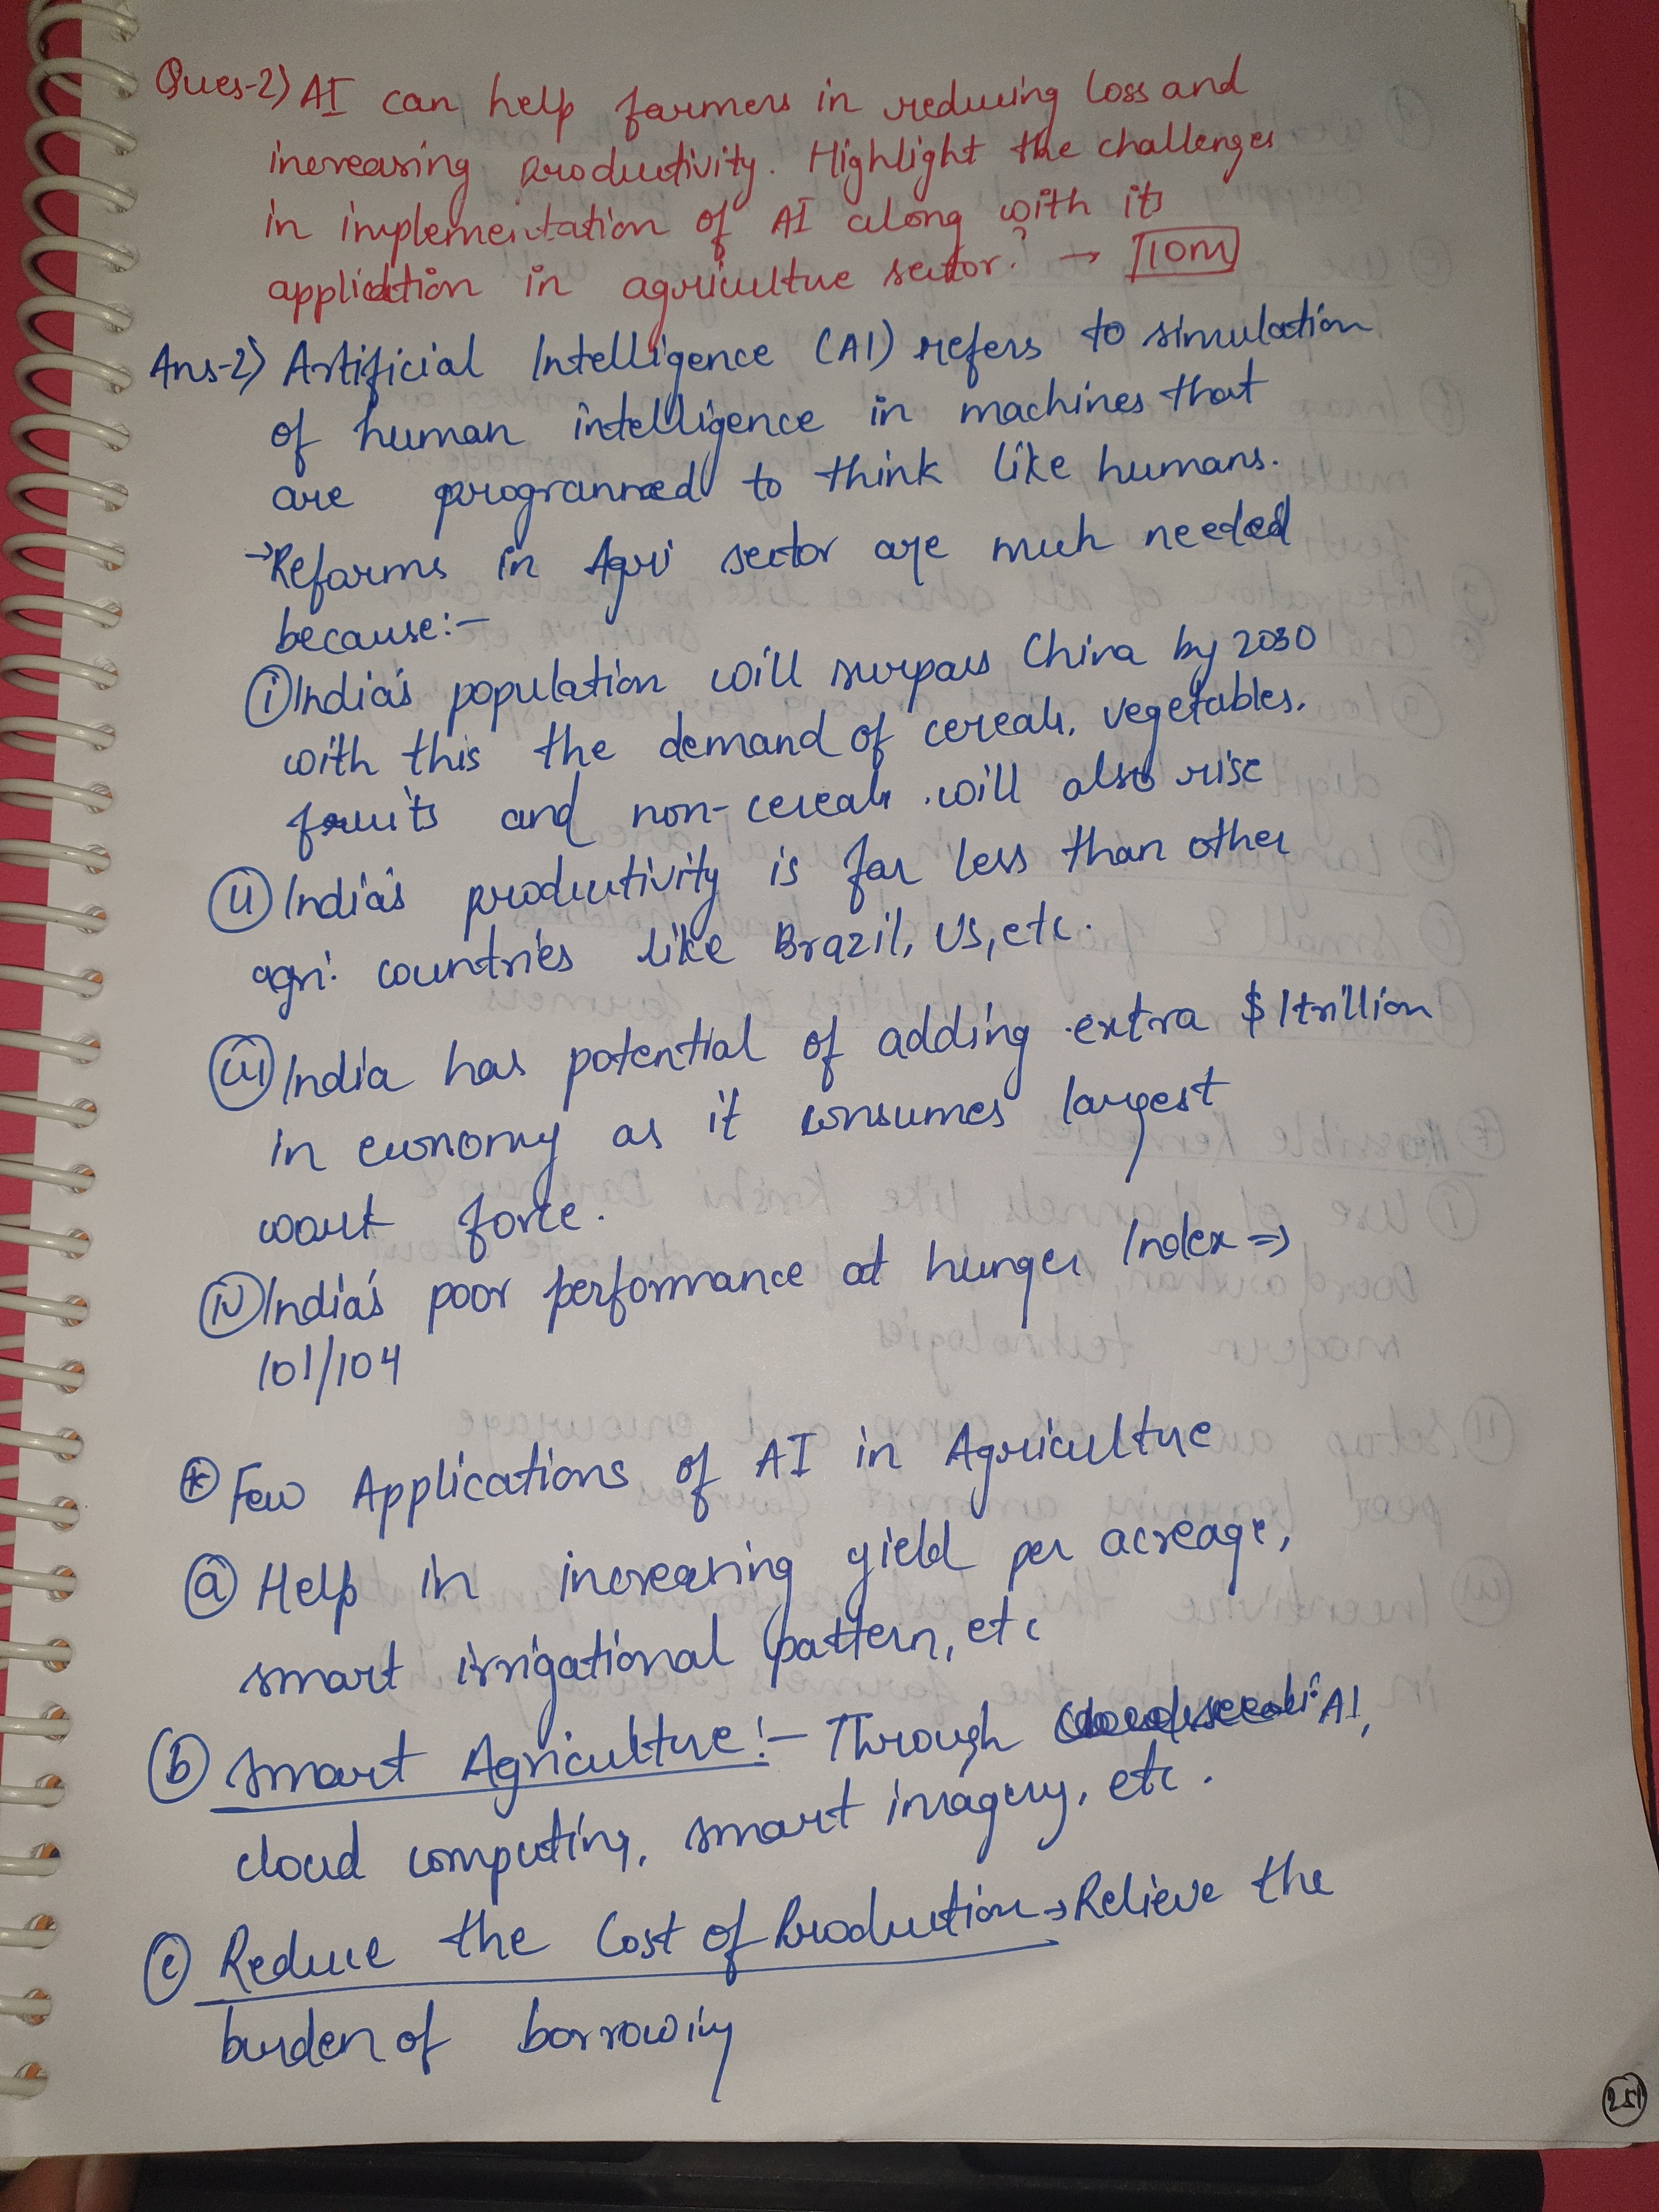 Ques-2) AI can help farmers in reducing loss and
increasing productivity. Highlight the challenges
in implementation of AI along with its
application in agriculture sector. → 10M
Ans-2) Artificial Intelligence (AI) refers to simulation
of human intelligence in machines that
are programmed to think like humans.
→ Reforms in Agri sector are much needed
because:-
(i) India's population will surpass China by 2030
with this the demand of cereals, vegetables,
fruits and non-cereals will also rise
(ii) India's productivity is far less than other
agri. countries like Brazil, US, etc.
(iii) India has potential of adding extra $1trillion
in economy as it consumes largest
work force.
(iv) India's poor performance at hunger Index ⇒
101/104
* Few Applications of AI in Agriculture
(a) Help in increasing yield per acreage,
smart irrigational pattern, etc
(b) Smart Agriculture:- Through AI,
cloud computing, smart imagery, etc.
(c) Reduce the Cost of Production → Relieve the
burden of borrowing
251